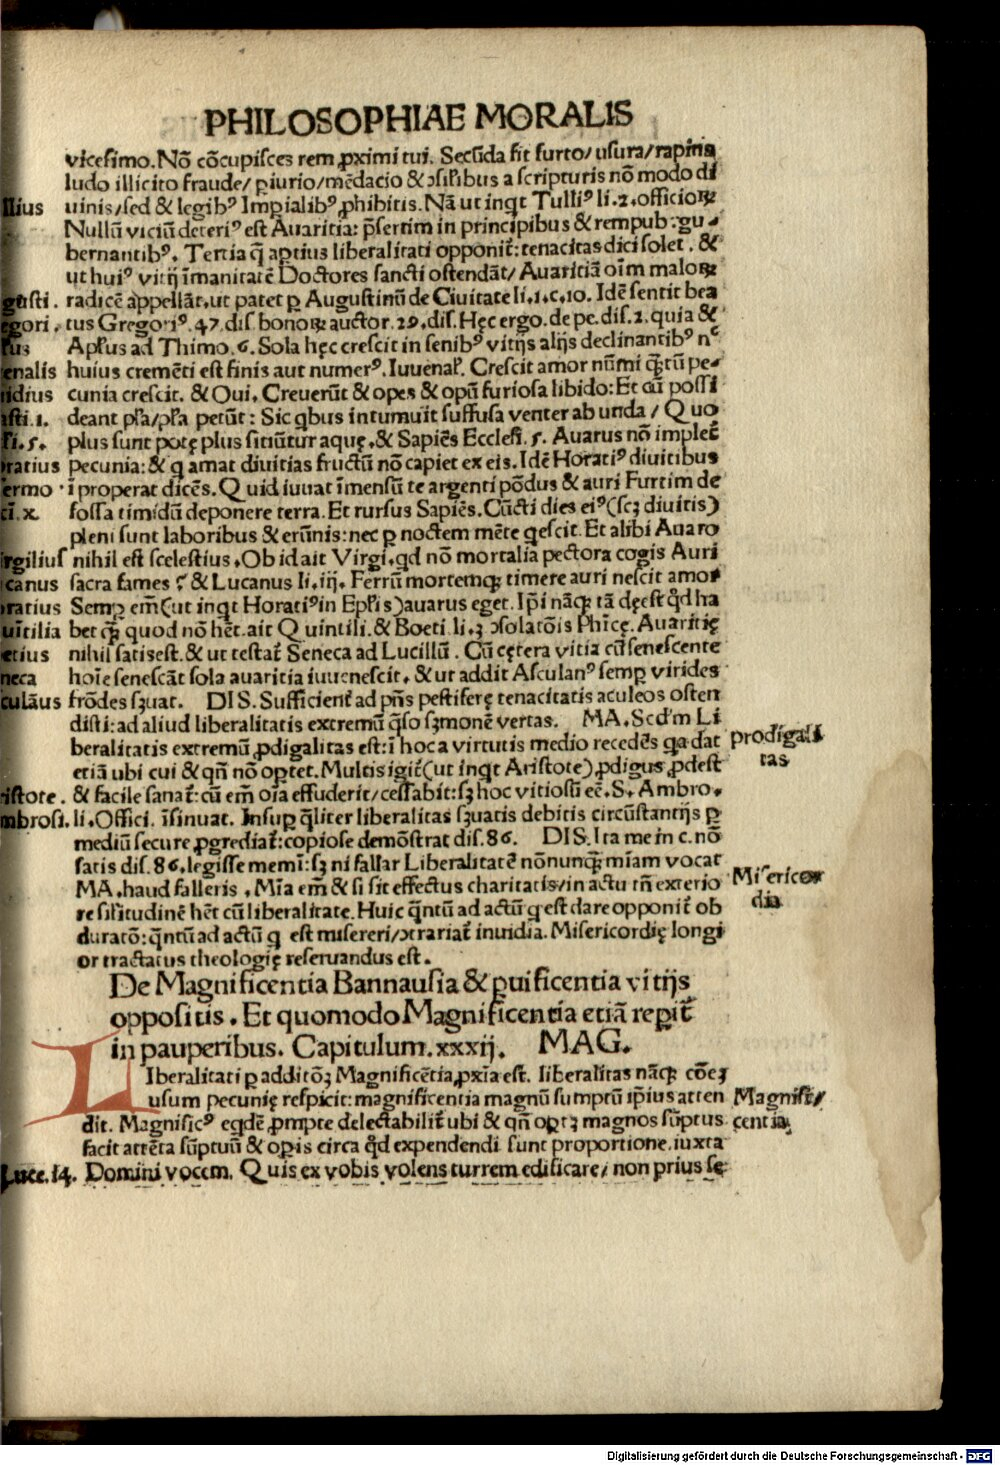 PHILOSOPHIAE MORALIS
vicesimo. Nō cōcupisces rem ꝓximi tui. Secūda fit furto/ usura/ rapina
ludo illicito fraude/ ꝑiurio/ mēdacio & ɔsil'ibus a scripturis nō modo di
uinis/ sed & legibꝰ Imꝑialibꝰ ꝓhibitis. Nā ut inqt Tulliꝰ li. 2. officioꝝ
Nullū viciū deteriꝰ est Auaritia: p̄sertim in principibus & rempub: gu⸗
bernantibꝰ. Tertia q̄ aptius liberalitati opponit̄: tenacitas dici solet. &
ut huiꝰ vitij īmanitatē Doctores sancti ostendāt/ Auaritiā oīm maloꝝ
radicē appellāt, ut patet ꝑ Augustinū de Ciuitate li. 1. c. 10. Idē sentit bea
tus Gregoriꝰ. 47. dis. bonoꝝ auctor. 29. dis. Hęc ergo. de pe. dis. 2. quia &
Apl'us ad Thimo. 6. Sola hęc crescit in senibꝰ vitijs alijs declinantibꝰ nᶜ
huius cremēti est finis aut numerꝰ. Iuuenal'. Crescit amor nūmi q̄tū pe⸗
cunia crescit. & Oui. Creuerūt & opes & opū furiosa libido: Et cū possi
deant pl'a/ pl'a petūt: Sic qbus intumuit suffusa venter ab unda/ Quo
plus sunt potę plus sitiūtur aquę. & Sapiēs Ecclesi. 5. Auarus nō implet̄
pecunia: & q amat diuitias fructū nō capiet ex eis. Idē Horatiꝰ diuitibus
ī properat dicēs. Quid iuuat īmensū te argenti pōdus & auri Furtim de
fossa timidū deponere terra. Et rursus Sapiēs. Cūcti dies eiꝰ (scꝫ diuitis)
pleni sunt laboribus & erūnis: nec ꝑ noctem mēte qescit. Et alibi Auaro
nihil est scelestius. Ob id ait Virgi. qd nō mortalia pectora cogis Auri
sacra fames ? & Lucanus li. iij. Ferrū mortemqꝫ timere auri nescit amor
Semꝑ em̄ (ut inqt Horatiꝰ in Epl'is) auarus eget. Ip̄i nāqꝫ tā dęest q̄d ha
bet q̄ꝫ quod nō hēt. ait Quintili. & Boeti. li. 3 ɔsolatōis Phīcę. Auaritię
nihil satis est. & ut testat̄ Seneca ad Lucillū. Cū cętera vitia cū senescente
hoīe senescāt sola auaritia iuuenescit. & ut addit Asculanꝰ semꝑ virides
frōdes sꝫuat. DIS. Sufficient̄ ad pn̄s pestiferę tenacitatis aculeos osten
disti: ad aliud liberalitatis extremū q̄so sꝫmonē vertas. MA. Scd'm Li
beralitatis extremū ꝓdigalitas est: ī hoc a virtutis medio recedēs qa dat
etiā ubi cui & qn̄ nō oꝑtet. Multis igit̄ (ut inqt Aristote) ꝓdigus ꝓdest
& facile sanat̄: cū em̄ oīa effuderit/ cessabit: sꝫ hoc vitiosū eē. S. Ambro.
li. Offici. īsinuat. Insuꝑ q̄liter liberalitas sꝫuatis debitis circūstantijs ꝑ
mediū secure ꝓgrediat̄: copiose demōstrat dis. 86. DIS. Ita me in c. nō
satis dis. 86. legisse memī: sꝫ ni fallar Liberalitatē nōnunq̄ꝫ mīam vocat
MA. haud falleris. Mīa em̄ & si sit effectus charitatis/ in actu tn̄ exterio
re sil'itudinē hēt cū liberalitate. Huic q̄ntū ad actū q est dare opponit̄ ob
duratō: q̄ntū ad actū q est misereri/ ɔtrariat̄ inuidia. Misericordię longi
or tractatus theologię reseruandus est.
De Magnificentia Bannausia & ꝑuificentia vitijs
oppositis. Et quomodo Magnificentia etiā reꝑit̄
in pauperibus. Capitulum. xxxij. MAG.
LIberalitati ꝑ additōꝫ Magnificētia ꝓxīa est. liberalitas nāqꝫ cōeꝫ
usum pecunię respicit: magnificentia magnū sumptū ip̄ius atten
dit. Magnificꝰ eqdē ꝓmpte delectabilit̄ ubi & qn̄ oꝑtꝫ magnos sūptus
facit attēta sūptuū & oꝑis circa q̄d expendendi sunt proportione. iuxta
Domini vocem. Quis ex vobis volens turrem edificare/ non prius se
llius
gusti.
egori.
lus
enalis
idius
asti. 1.
si. 5.
ratius
ermo
cī. x
irgilius
canus
ratius
uītilia
etius
neca
culāus
ristote.
mbrosi.
Luce. 14.
prodigali
tas
Misericor
dia
Magnifi/
centia
Digitalisierung gefördert durch die Deutsche Forschungsgemeinschaft - DFG